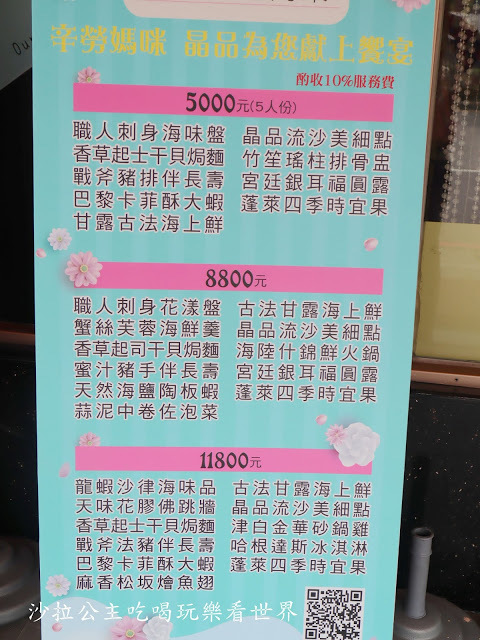 辛勞媽咪 晶品為您獻上饗宴
酌收10%服務費
5000元(5人份)
職人刺身海味盤 晶品流沙美細點
香草起士干貝焗麵 竹笙瑤柱排骨盅
戰斧豬排伴長壽 宮廷銀耳福圓露
巴黎卡菲酥大蝦 蓬萊四季時宜果
甘露古法海上鮮
8800元
職人刺身花漾盤 古法甘露海上鮮
蟹絲芙蓉海鮮羹 晶品流沙美細點
香草起司干貝焗麵 海陸什錦鮮火鍋
蜜汁豬手伴長壽 宮廷銀耳福圓露
天然海鹽陶板蝦 蓬萊四季時宜果
蒜泥中卷佐泡菜
11800元
龍蝦沙律海味品 古法甘露海上鮮
天味花膠佛跳牆 晶品流沙美細點
香草起士干貝焗麵 津白金華砂鍋雞
戰斧法豬伴長壽 哈根達斯冰淇淋
巴黎卡菲酥大蝦 蓬萊四季時宜果
麻香松坂燴魚翅
沙拉公主吃喝玩樂看世界